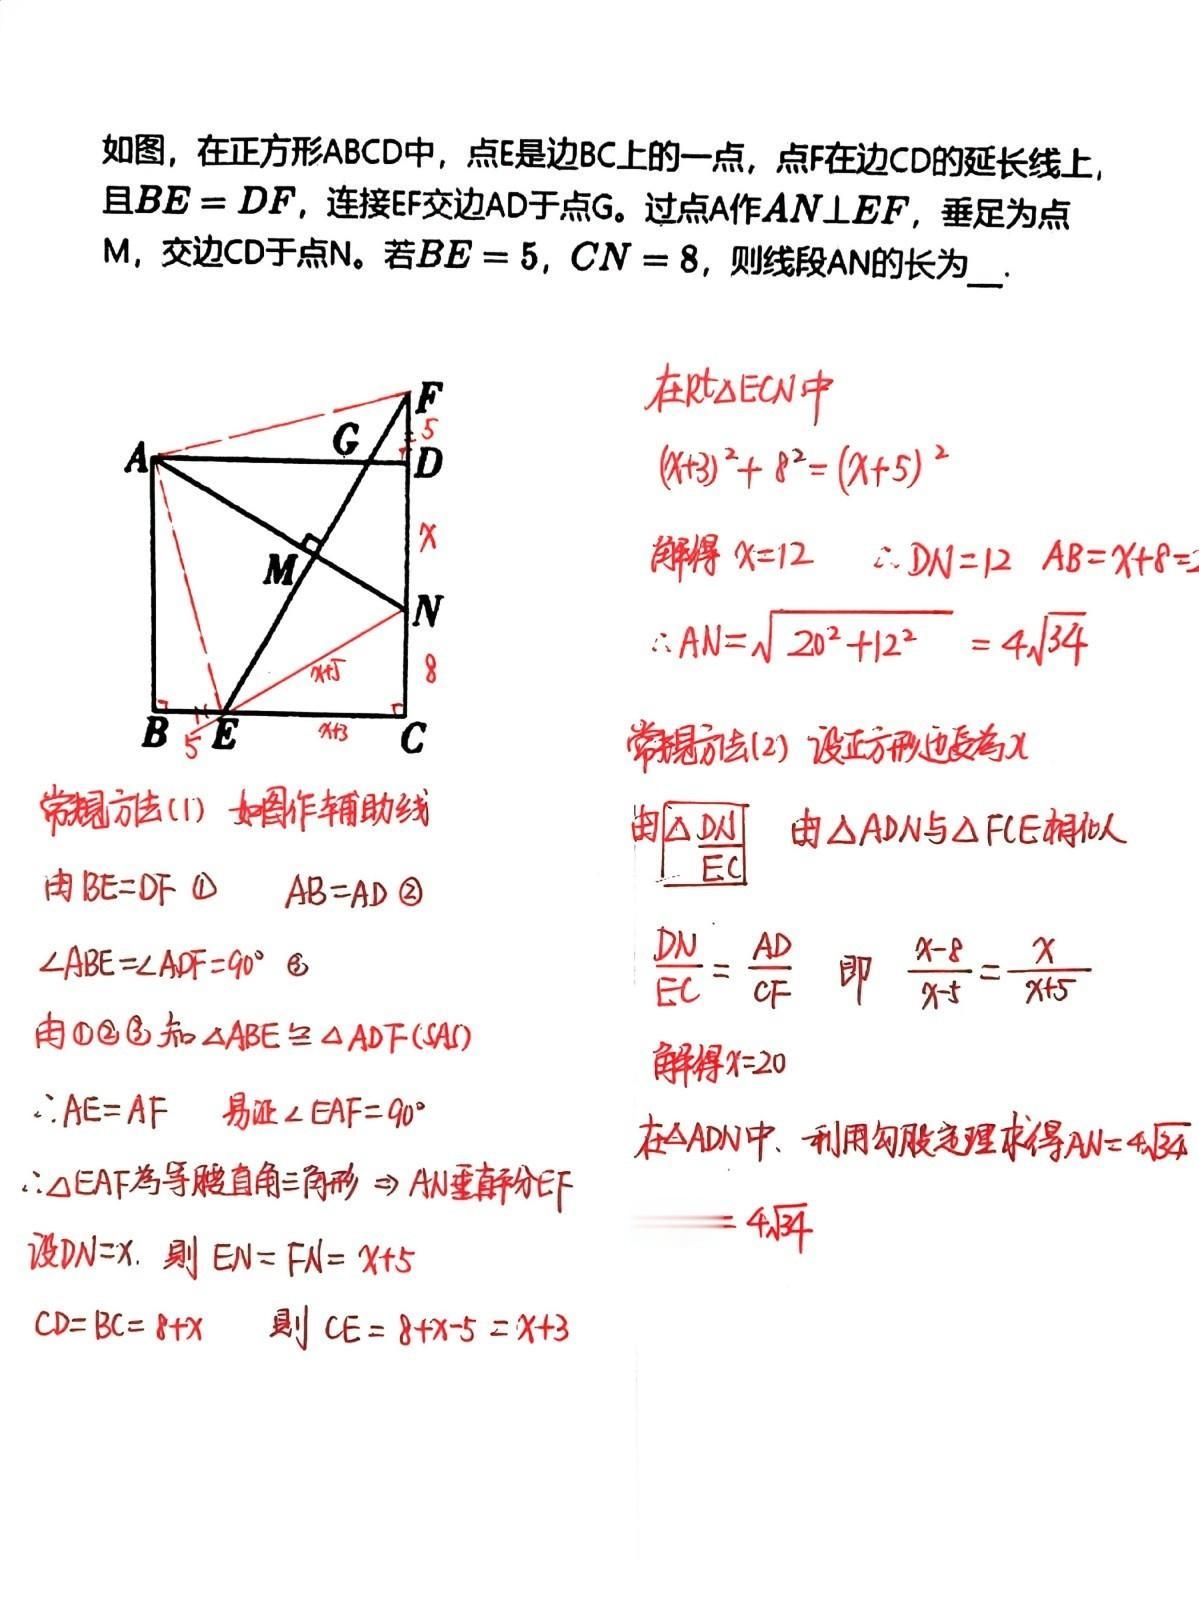 如图，在正方形ABCD中，点E是边BC上的一点，点F在边CD的延长线上，
且BE = DF，连接EF交边AD于点G。过点A作AN⊥EF，垂足为点
M，交边CD于点N。若BE = 5，CN = 8，则线段AN的长为__.
F
5
G
A
D
x
M
N
x+5
8
B
5
E
x+3
C
常规方法(1) 如图作辅助线
由BE=DF ① AB=AD ②
∠ABE=∠ADF=90° ③
由①②③知△ABE≌△ADF(SAS)
∴AE=AF 易证∠EAF=90°
∴△EAF为等腰直角三角形 ⇒ AN垂直平分EF
设DN=x. 则 EN=FN=x+5
CD=BC=8+x 则 CE=8+x-5=x+3
在Rt△ECN中
(x+3)²+8²=(x+5)²
解得 x=12 ∴DN=12 AB=x+8=2
∴AN=√(20²+12²) =4√34
常规方法(2) 设正方形边长为x
由△DN/EC 由△ADN与△FCE相似
DN/EC=AD/CF 即 (x-8)/(x-5)=x/(x+5)
解得x=20
在△ADN中、利用勾股定理求得AN=4√34
=4√34